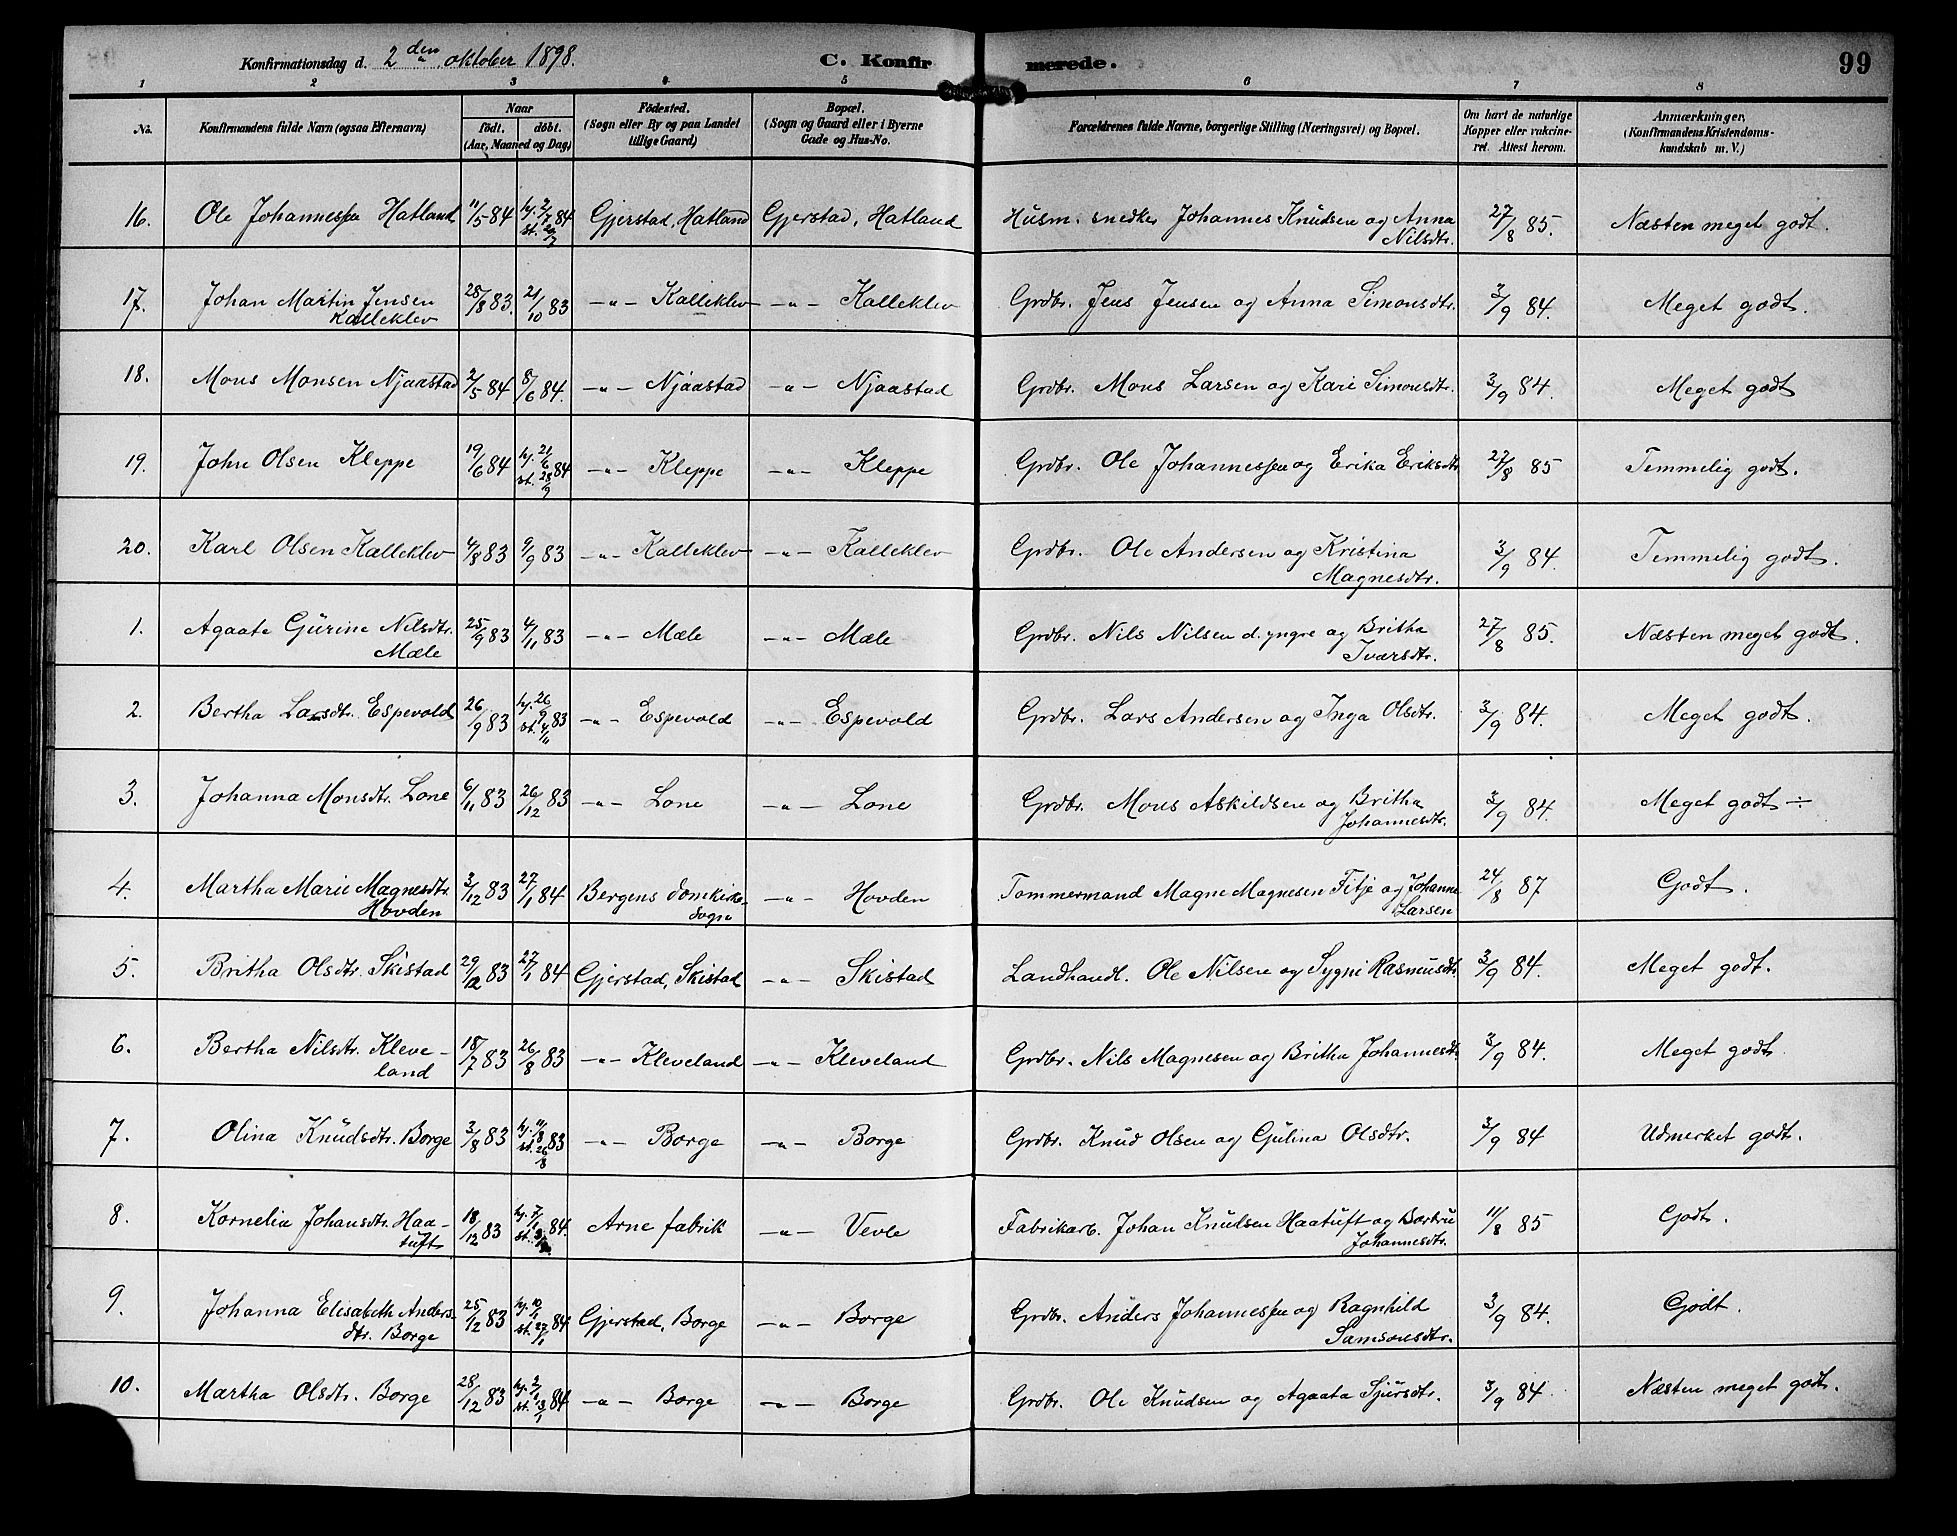 Konfirmationsdag d. 2den oktober 1898. C. Konfirmerede. 99
1 2 3 4 5 6 7 8
No. Konfirmandens fulde Navn (ogsaa Efternavn) Naar Fødested. Bopæl. Forældrenes fulde Navne, borgerlige Stilling (Næringsvei) og Bopæl. Om havt de naturlige Anmærkninger.
født. døbt. (Sogn eller By og paa Landet (Sogn og Gaard eller i Byerne Kopper eller vakcine- (Konfirmandens Kristendoms-
(Aar, Maaned og Dag) tillige Gaard) Gade og Hus-No. ret. Attest herom. kundskab m. V.)
16. Ole Johannessen Hatland 11/5 84 hj. 2/7 84 st. 20/7 Gjerstad, Hatland Gjerstad, Hatland Husm. snedker Johannes Knudsen og Anna 27/8 85. Næsten meget godt.
Nilsdtr.
17. Johan Martin Jensen 28/8 83. 21/10 83 -„- Kalleklev -„- Kalleklev Grdbr. Jens Jensen og Anna Simonsdtr. 3/9 84. Meget godt.
Kalleklev
18. Mons Monsen Njaastad 2/5 84 8/6 84. -„- Njaastad -„- Njaastad Grdbr. Mons Larsen og Kari Simonsdtr. 3/9 84. Meget godt
19. John Olsen Kleppe 19/6 84 hj. 21/6 84 st. 28/9 -„- Kleppe -„- Kleppe Grdbr. Ole Johannessen og Erika Eriksdtr 27/8 85 Temmelig godt.
20. Karl Olsen Kalleklev 4/8 83 9/9 83 -„- Kalleklev -„- Kalleklev Grdbr. Ole Andersen og Kristina 3/9 84. Temmelig godt.
Magnesdtr.
1. Agaate Gurine Nilsdtr. 25/9 83 4/11 83 -„- Mæle -„- Mæle Grdbr. Nils Nilsen d. yngre og Britha 27/8 85. Næsten meget godt.
Mæle Ivarsdtr.
2. Bertha Larsdtr. Espevold 26/9 83 hj. 26/9 83 st. 4/11 -„- Espevold -„- Espevold Grdbr. Lars Andersen og Inga Olsdtr. 3/9 84. Meget godt.
3. Johanna Monsdtr. Lone 6/11 83 26/12 83 -„- Lone -„- Lone Grdbr. Mons Askildsen og Britha 3/9 84. Meget godt ÷
Johannesdtr.
4. Martha Marie Magnesdtr. 3/12 83 27/1 84 Bergens domkirke- -„- Hovden Tommermand Magne Magnesen Fitje og Johanna 24/8 87 Godt.
Hovden sogn Larsen
5. Britha Olsdtr. Skistad 29/12 83 27/1 84 Gjerstad, Skistad -„- Skistad Landhandl. Ole Nilsen og Sygni Rasmusdtr. 3/9 84. Meget godt.
6. Bertha Nilsdtr. Kleve- 18/7 83 26/8 83 -„- Kleveland -„- Kleveland Grdbr. Nils Magnesen og Britha Johannesdt. 3/9 84. Meget godt.
land
7. Olina Knudsdtr. Borge 3/8 83 hj. 11/8 83 st. 26/8 -„- Borge -„- Borge Grdbr. Knud Olsen og Gulina Olsdtr. 3/9 84 Udmerket godt.
8. Kornelia Johansdtr. Haa- 18/12 83 hj. 7/1 84. st. Arne fabrik -„- Vevle Fabrikarb. Johan Knutsen Haatuft og Bortru 11/8 85 Godt.
tuft Johannesdtr.
9. Johanna Elisabeth Anders- 25/12 83 hj. 10/1 84 st. 27/1 Gjerstad, Borge -„- Borge Grdbr. Anders Johannessen og Ragnhild 3/9 84. Godt.
dtr. Borge Samsonsdtr.
10. Martha Olsdtr. Borge 28/12 83 hj. 2/1 84 st. 13/1 -„- Borge -„- Borge Grdbr. Ole Knudsen og Agaata Sjursdtr. 3/9 84 Næsten meget godt.